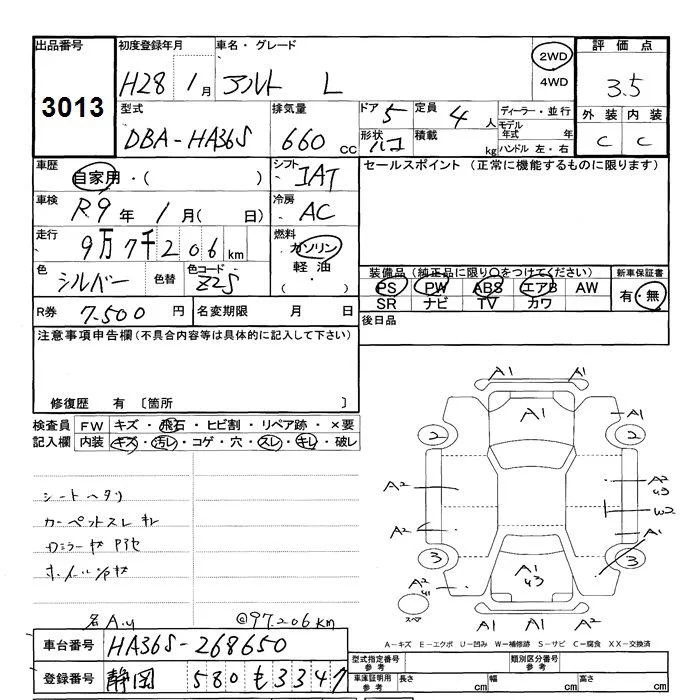 出品番号 初度登録年月 車名・グレード 2WD 評価点
3013 H28 1月 アルト L 4WD 3.5
型式 排気量 ドア 5 定員 4人 ディーラー・並行 外装 内装
DBA-HA36S 660cc 形状 ハコ 積載 kg モデル年式 年 C C
ハンドル 左・右
車歴 自家用・( ) シフト IAT セールスポイント (正常に機能するものに限ります)
車検 R9年 1月( 日) 冷房 AC
走行 9万7千206km 燃料 ガソリン
軽油・
色 シルバー 色替 色コード Z2S 装備品 (純正品に限り○をつけてください) 新車保証書
PS PW ABS エアB AW 有・無
SR ナビ TV カワ
R券 7.500円 名変期限 月 日 後日品
注意事項申告欄(不具合内容等は具体的に記入して下さい)
修復歴 有 〔箇所 〕
検査員 FW キズ・飛石・ヒビ割・リペア跡・×要
記入欄 内装 キズ・汚レ・コゲ・穴・スレ・キレ・破レ
A1 A1
A1 A1
2 2
A2 A2 U3
W2
A2 A1
3 3
A2 U1 A1 U3
スペア A1 A1 A1
シートヘタリ
カーペットスレ キレ
ホイールキズ
@97.206km
A-キズ E-エクボ U-凹み W-補修跡 S-サビ C-腐食 XX-交換済
車台番号 HA36S-268650
登録番号 静岡 580 も 3347
型式指定番号 参考 類別区分番号 参考
車庫証明用 参考 長さ cm 幅 cm 高さ cm